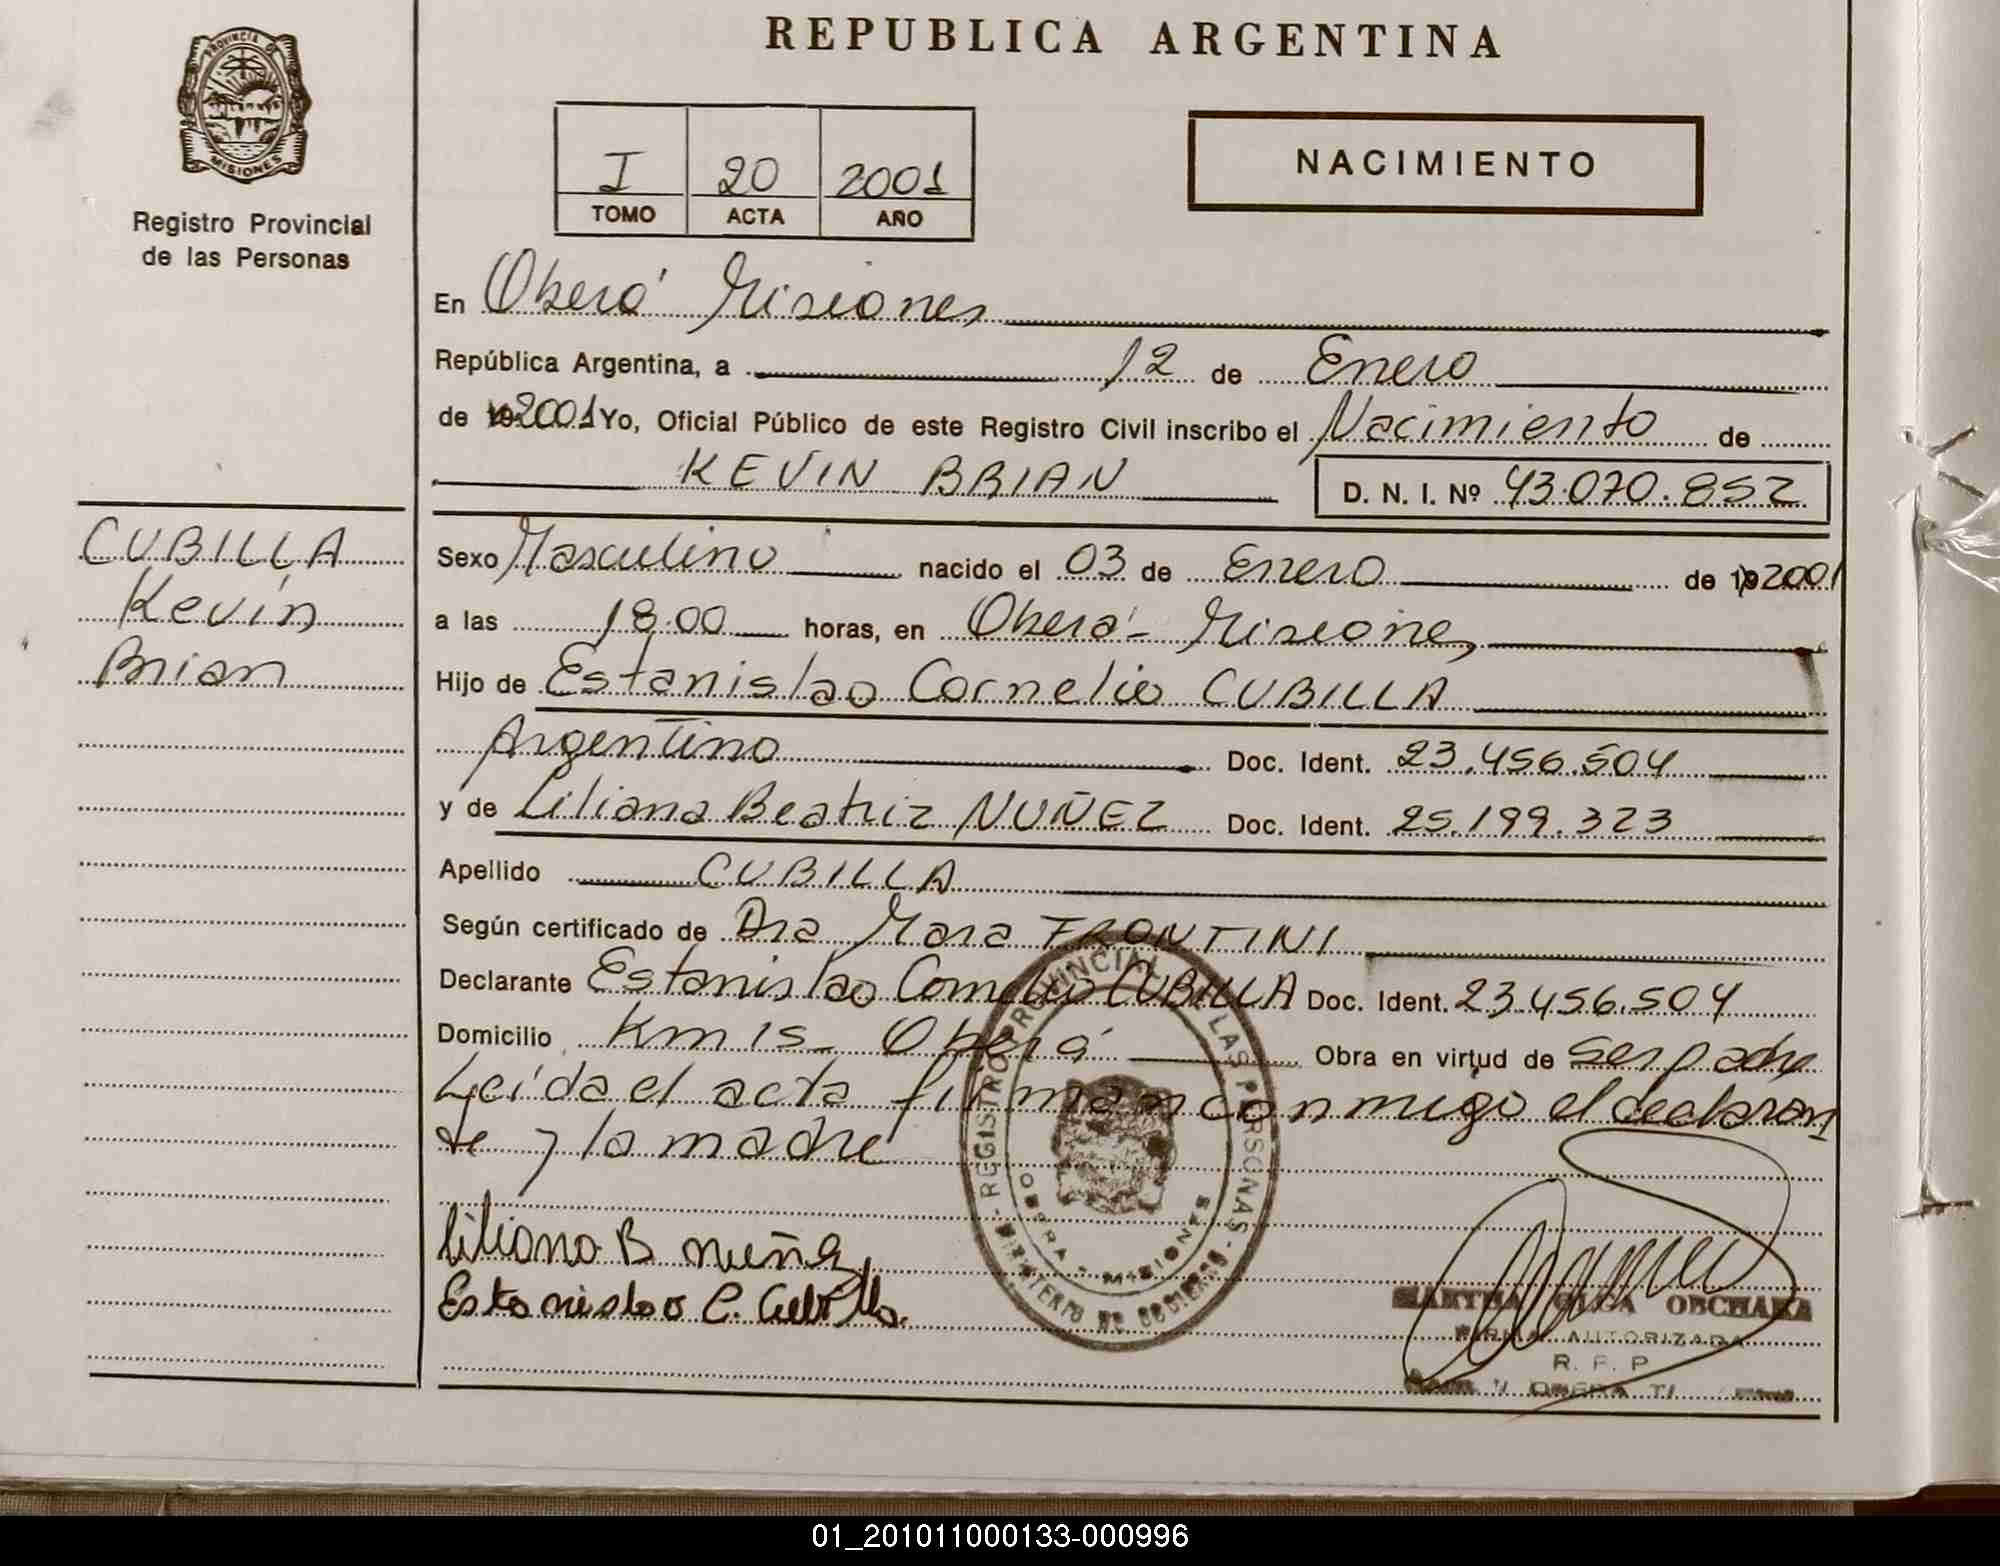 REPUBLICA ARGENTINA
PROVINCIA DE
MISIONES
Registro Provincial
de las Personas
I 20 2001
TOMO ACTA AÑO
NACIMIENTO
En Oberá Misiones
República Argentina, a 12 de Enero
de 19 2001 Yo, Oficial Público de este Registro Civil inscribo el Nacimiento de
KEVIN BRIAN D. N. I. Nº 43.070.852
CUBILLA
Kevin
Brian
Sexo Masculino nacido el 03 de Enero de 19 2001
a las 18.00 horas, en Oberá - Misiones
Hijo de Estanislao Cornelio CUBILLA
Argentino Doc. Ident. 23.456.504
y de Liliana Beatriz NUÑEZ Doc. Ident. 25.199.323
Apellido CUBILLA
Según certificado de Dra Mara FRONTINI
Declarante Estanislao Cornelio CUBILLA Doc. Ident. 23.456.504
Domicilio Km 15 - Oberá Obra en virtud de ser padre
Leída el acta firman conmigo el declaran
te y la madre
REGISTRO PROVINCIAL LAS PERSONAS -
OBERA - MISIONES
MINISTERIO DE GOBIERNO
Liliana B nuñez
Estanislao C. Cubilla.
MARTHA OLGA OBCHARA
FIRMA AUTORIZADA
R. P. P
OBERA
01_201011000133-000996